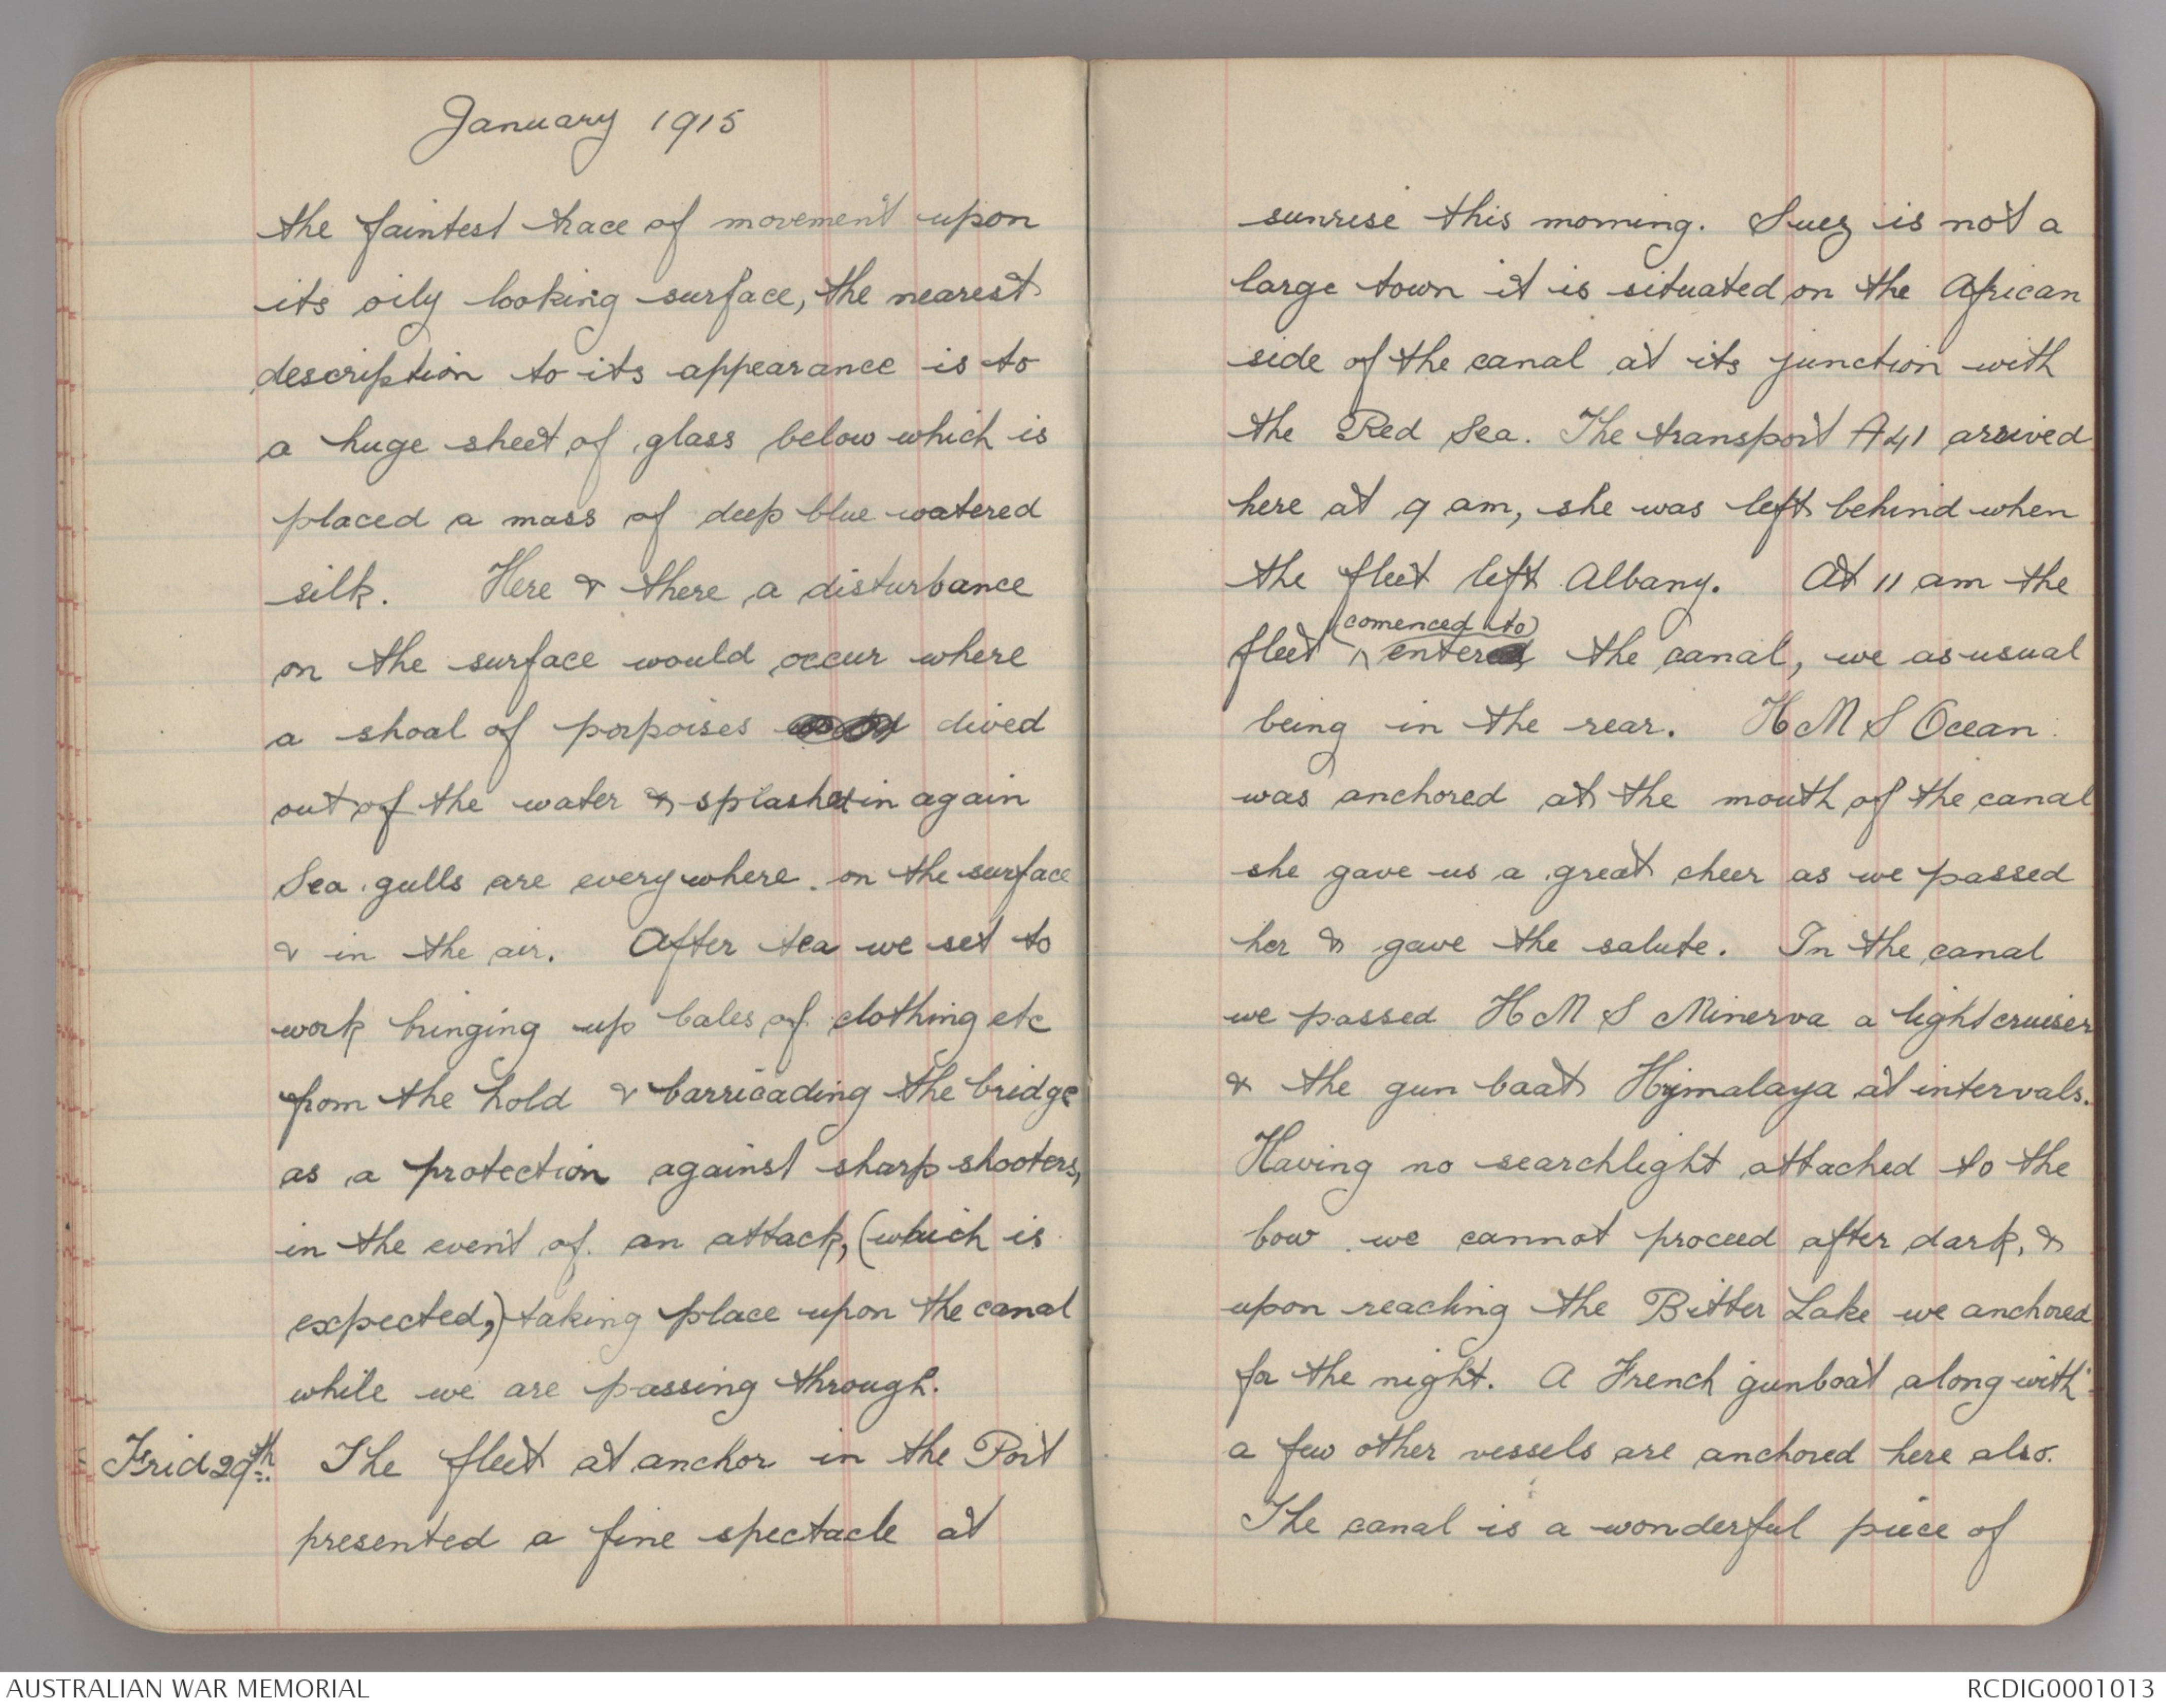 January 1915
the faintest trace of movement upon
its oily looking surface, the nearest
description to its appearance is to
a huge sheet of glass below which is
placed a mass of deep blue watered
silk. Here & there a disturbance
on the surface would occur where
a shoal of porpoises dived
out of the water & splashed in again
Sea gulls are everywhere. on the surface
& in the air. After tea we set to
work bringing up bales of clothing etc
from the hold & barricading the bridge
as a protection against sharp shooters,
in the event of an attack, (which is
expected,) taking place upon the canal
while we are passing through.
Frid 29th. The fleet at anchor in the Port
presented a fine spectacle at
sunrise this morning. Suez is not a
large town it is situated on the African
side of the canal at its junction with
the Red Sea. The transport A41 arrived
here at 9 am, she was left behind when
the fleet left Albany. At 11 am the
comenced to
fleet ^ enter the canal, we as usual
being in the rear. H M S Ocean
was anchored at the mouth of the canal
she gave us a great cheer as we passed
her & gave the salute. In the canal
we passed H M S Minerva a light cruiser
& the gun boat Hymalaya at intervals.
Having no searchlight attached to the
bow we cannot proceed after dark, &
upon reaching the Bitter Lake we anchored
for the night. A French gunboat along with
a few other vessels are anchored here also.
The canal is a wonderful piece of
AUSTRALIAN WAR MEMORIAL
RCDIG0001013